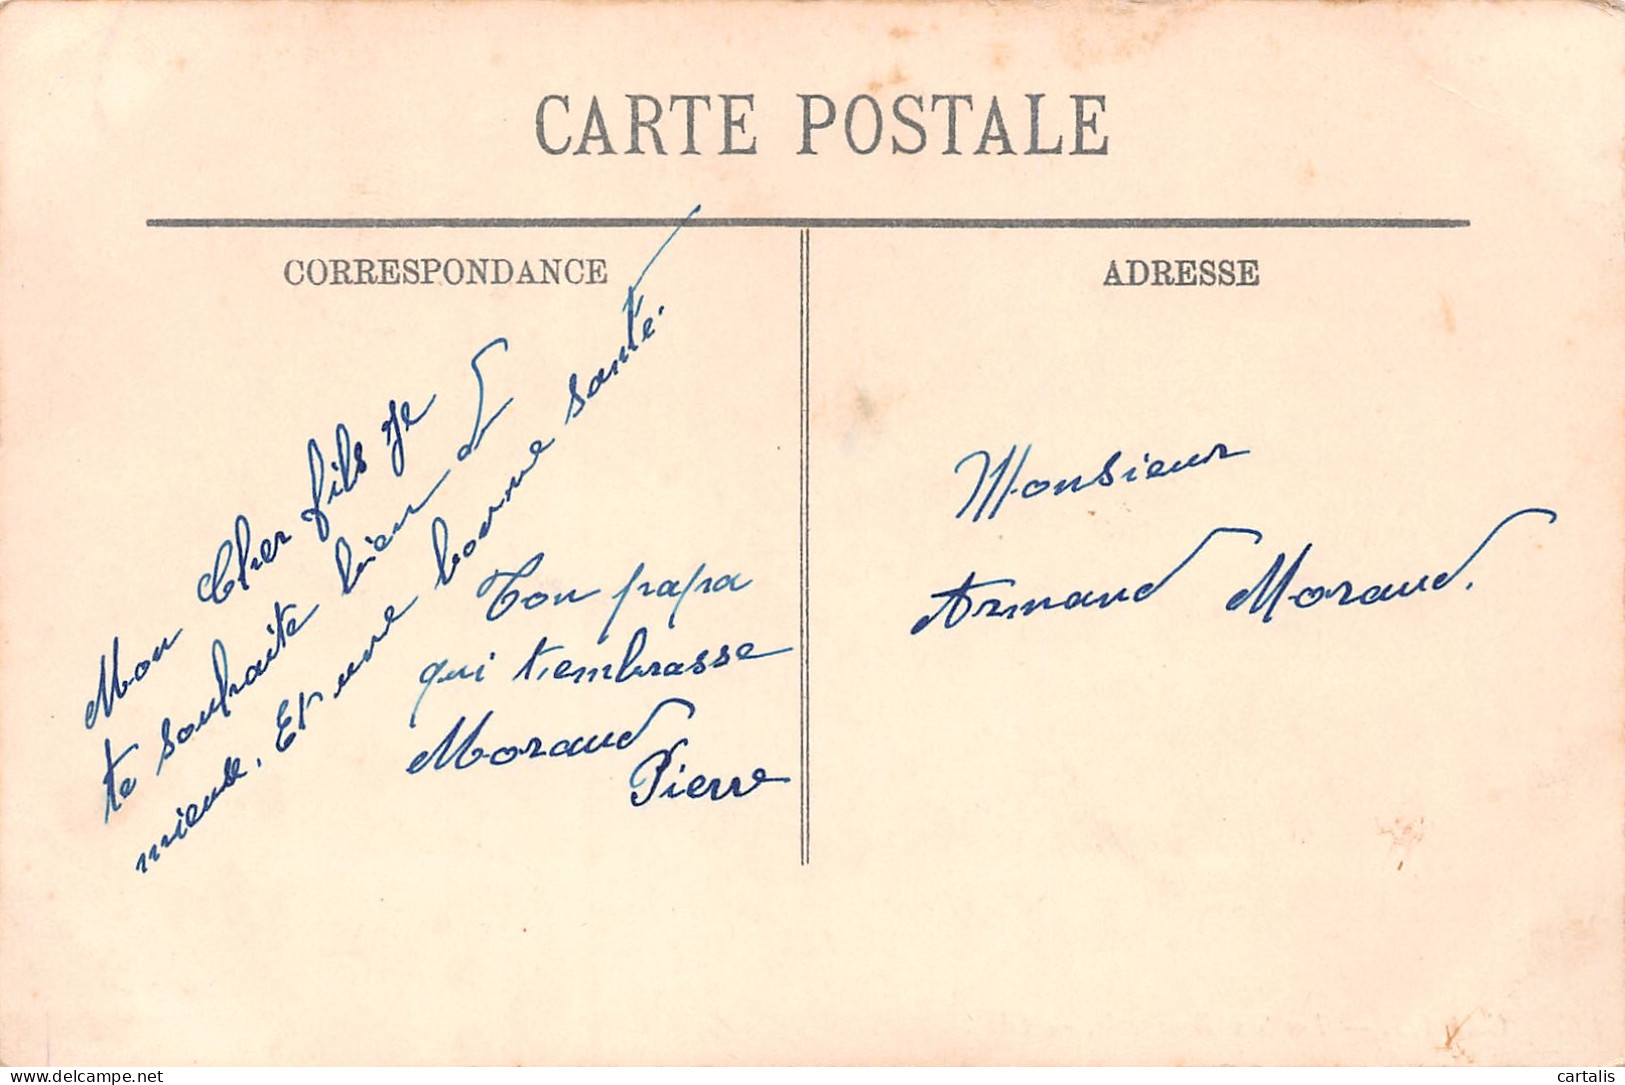 CARTE POSTALE
CORRESPONDANCE
Mon Cher fils je
te souhaite bien du
mieux. Et une bonne santé.
Ton papa
qui t'embrasse
Moraud
Pierre
ADRESSE
Monsieur
Armand Moraud.
delcampe.net
cartalis